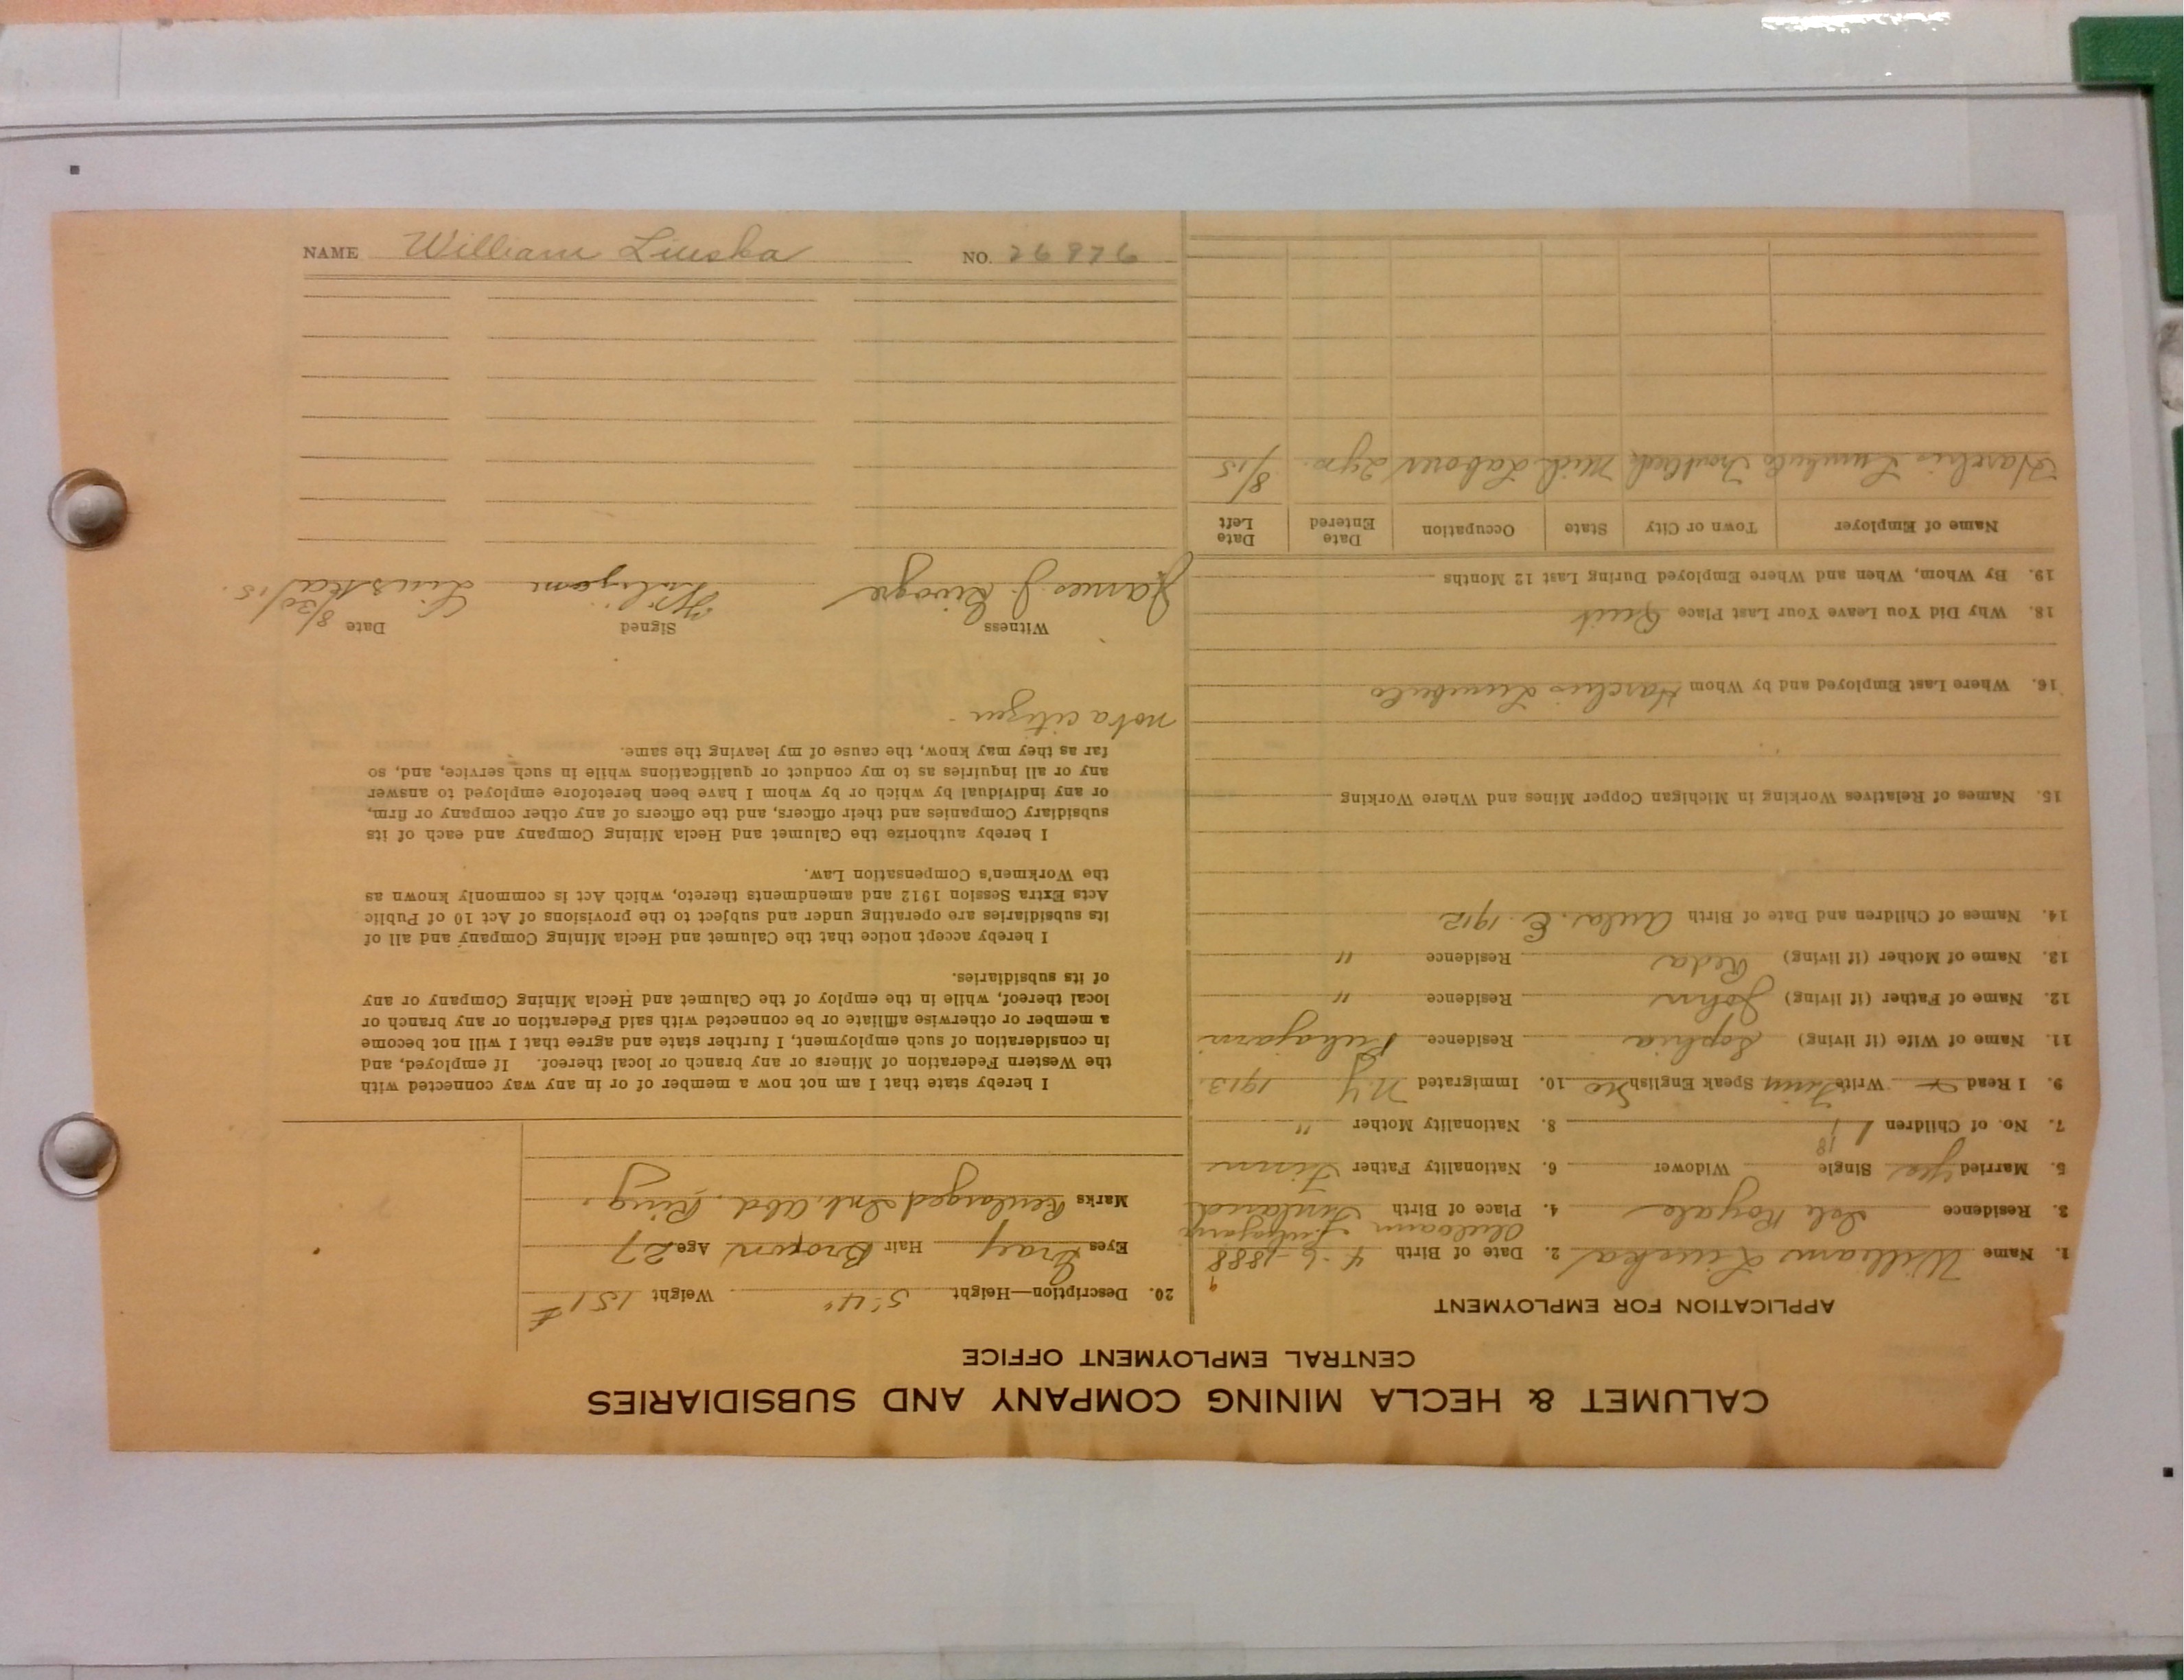 NAME William Liuska NO. 26976
CALUMET & HECLA MINING COMPANY AND SUBSIDIARIES
CENTRAL EMPLOYMENT OFFICE
APPLICATION FOR EMPLOYMENT
1. Name William Liuska 2. Date of Birth 4-6-1888
3. Residence Isle Royale 4. Place of Birth Finland
5. Married Yes Single Widower 6. Nationality Father Finn
7. No. of Children 1 8. Nationality Mother "
9. I Read Write Finn Speak English No 10. Immigrated N.Y 1913.
11. Name of Wife (if living) Sophia Residence
12. Name of Father (if living) John Residence "
13. Name of Mother (if living) Residence "
14. Names of Children and Date of Birth E. 1912
15. Names of Relatives Working in Michigan Copper Mines and Where Working
16. Where Last Employed and by Whom
18. Why Did You Leave Your Last Place Quit
19. By Whom, When and Where Employed During Last 12 Months
Name of Employer Town or City State Occupation Date Entered Date Left
Mich Laborer 2 yrs. 8/15
20. Description—Height 5'-4" Weight 151 #
Eyes Gray Hair Brown Age 27
Marks Enlarged Int. Abd. Ring.
I hereby state that I am not now a member of or in any way connected with
the Western Federation of Miners or any branch or local thereof. If employed, and
in consideration of such employment, I further state and agree that I will not become
a member or otherwise affiliate or be connected with said Federation or any branch or
local thereof, while in the employ of the Calumet and Hecla Mining Company or any
of its subsidiaries.
I hereby accept notice that the Calumet and Hecla Mining Company and all of
its subsidiaries are operating under and subject to the provisions of Act 10 of Public
Acts Extra Session 1912 and amendments thereto, which Act is commonly known as
the Workmen's Compensation Law.
I hereby authorize the Calumet and Hecla Mining Company and each of its
subsidiary Companies and their officers, and the officers of any other company or firm,
or any individual by which or by whom I have been heretofore employed to answer
any or all inquiries as to my conduct or qualifications while in such service, and, so
far as they may know, the cause of my leaving the same.
not a citizen.
Witness Signed Date 8/30/15.
James J. Liuska